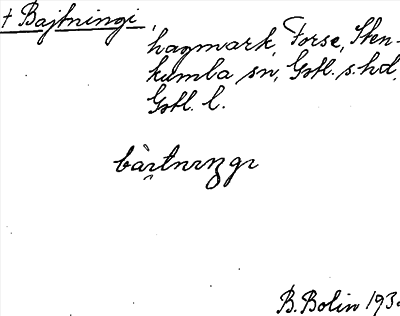 † Bajtningi,
hagmark, Forse, Sten-
kumba sn, Gotl. s. hd,
Gotl. l.
bàı̣tnıŋgı
B. Bolin 193